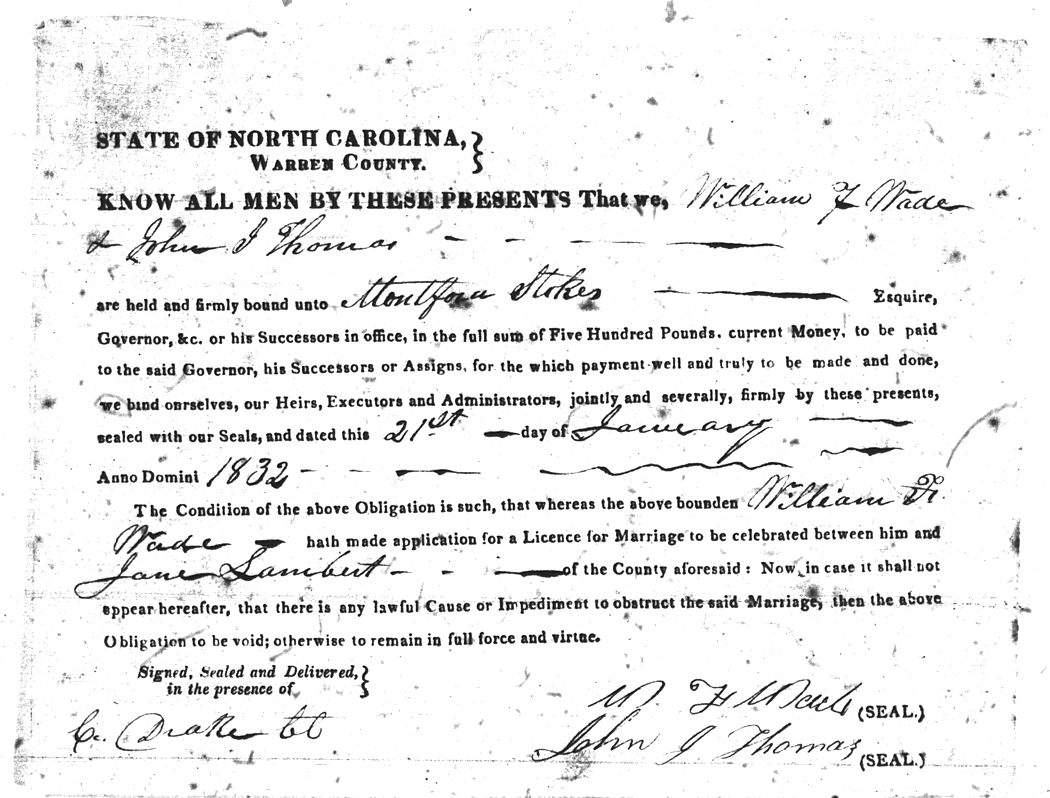 STATE OF NORTH CAROLINA,
WARREN COUNTY.
KNOW ALL MEN BY THESE PRESENTS That we, William F Wade
& John J Thomas
are held and firmly bound unto Montford Stokes Esquire,
Governor, &c. or his Successors in office, in the full sum of Five Hundred Pounds. current Money, to be paid
to the said Governor, his Successors or Assigns, for the which payment well and truly to be made and done,
we bind ourselves, our Heirs, Executors and Administrators, jointly and severally, firmly by these presents,
sealed with our Seals, and dated this 21st day of January
Anno Domini 1832
The Condition of the above Obligation is such, that whereas the above bounden William F.
Wade hath made application for a Licence for Marriage to be celebrated between him and
Jane Lambert of the County aforesaid: Now, in case it shall not
appear hereafter, that there is any lawful Cause or Impediment to obstruct the said Marriage, then the above
Obligation to be void; otherwise to remain in full force and virtue.
Signed, Sealed and Delivered,
in the presence of
W. F Wade (SEAL.)
C. Drake
John J Thomas (SEAL.)